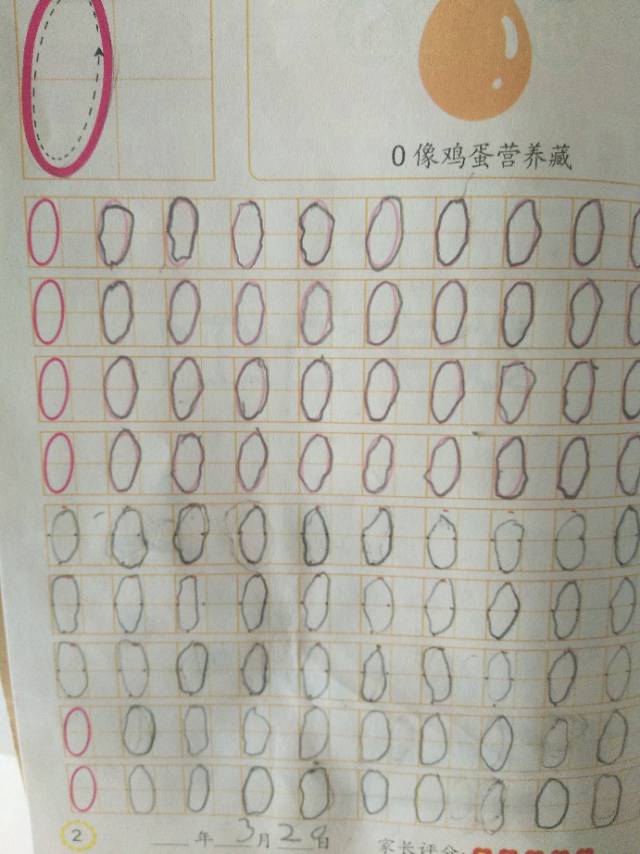 0
0 像鸡蛋营养藏
0 0 0 0 0 0 0 0 0 0
0 0 0 0 0 0 0 0 0 0
0 0 0 0 0 0 0 0 0 0
0 0 0 0 0 0 0 0 0 0
0 0 0 0 0 0 0 0 0 0
0 0 0 0 0 0 0 0 0 0
0 0 0 0 0 0 0 0 0 0
0 0 0 0 0 0 0 0 0 0
0 0 0 0 0 0 0 0 0 0
2 年 3月 29日 家长评分: